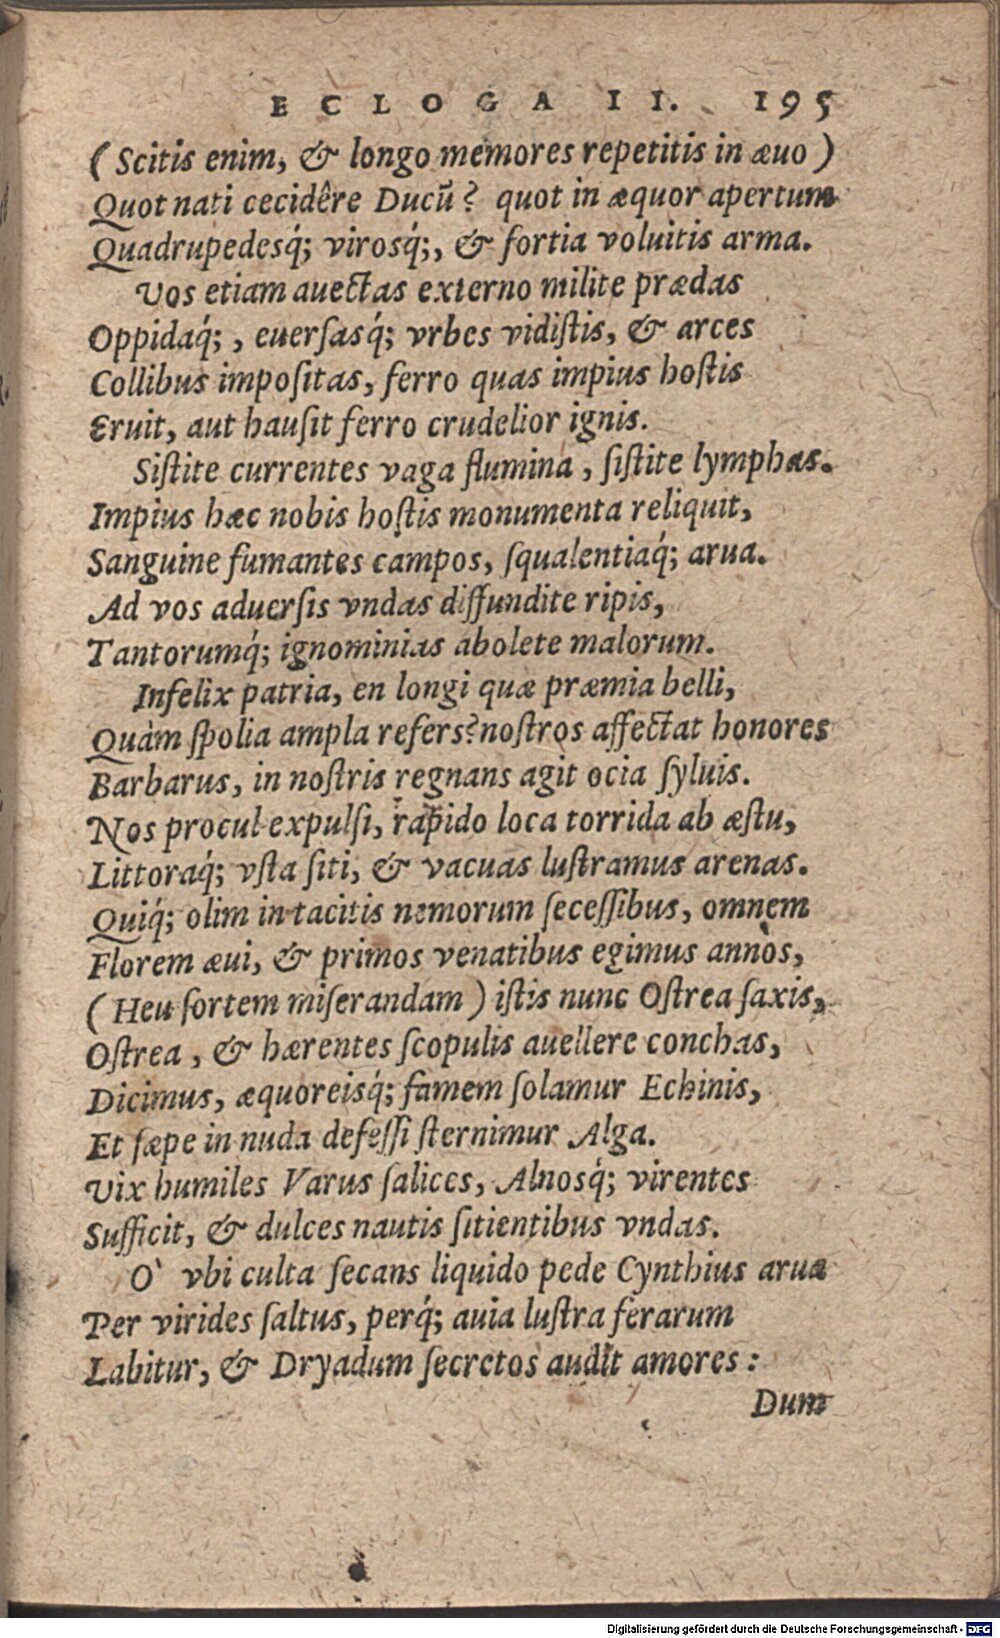 ECLOGA II. 195
( Scitis enim, & longo memores repetitis in æuo )
Quot nati cecidêre Ducũ? quot in æquor apertum
Quadrupedesq́; virosq́;, & fortia voluitis arma.
Vos etiam auectas externo milite prædas
Oppidaq́; , euerſasq́; vrbes vidiſtis, & arces
Collibus impoſitas, ferro quas impius hoſtis
Eruit, aut hauſit ferro crudelior ignis.
Siſtite currentes vaga flumina , ſiſtite lymphas.
Impius hæc nobis hoſtis monumenta reliquit,
Sanguine fumantes campos, ſqualentiaq́; arua.
Ad vos aduerſis vndas diffundite ripis,
Tantorumq́; ignominias abolete malorum.
Infelix patria, en longi quæ præmia belli,
Quàm ſpolia ampla refers? noſtros affectat honores
Barbarus, in noſtris regnans agit ocia ſyluis.
Nos procul expulſi, rapido loca torrida ab æſtu,
Littoraq́; vſta ſiti, & vacuas luſtramus arenas.
Quiq́; olim in tacitis nemorum ſeceſſibus, omnem
Florem æui, & primos venatibus egimus annos,
( Heu ſortem miſerandam ) iſtis nunc Oſtrea ſaxis,
Oſtrea , & hærentes ſcopulis auellere conchas,
Dicimus, æquoreisq́; famem ſolamur Echinis,
Et ſæpe in nuda defeſſi ſternimur Alga.
Vix humiles Varus ſalices, Alnosq́; virentes
Sufficit, & dulces nautis ſitientibus vndas.
O` vbi culta ſecans liquido pede Cynthius arua
Per virides ſaltus, perq́; auia luſtra ferarum
Labitur, & Dryadum ſecretos audit amores :
Dum
Digitalisierung gefördert durch die Deutsche Forschungsgemeinschaft - DFG